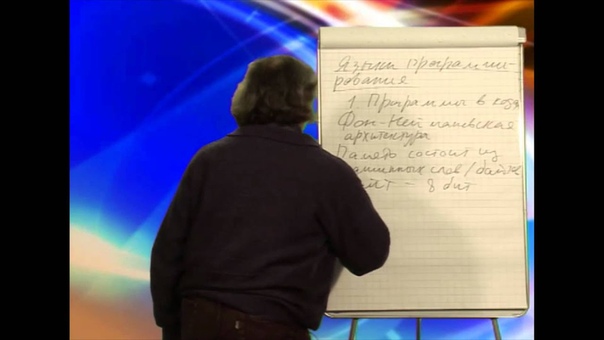 Языки программи-
рования
1. Программы в кодах
Фон-Неймановская
архитектура
Память состоит из
машинных слов / байтов
байт – 8 бит